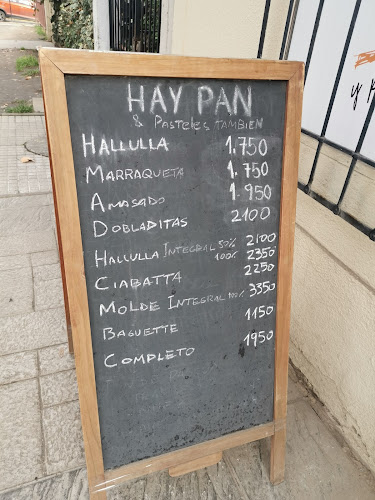 HAY PAN
& PASTELES TAMBIEN
HALLULLA 1.750
MARRAQUETA 1.750
AMASADO 1.950
DOBLADITAS 2100
HALLULLA INTEGRAL 50% 2100
100% 2350
CIABATTA 2250
MOLDE INTEGRAL 100% 3350
BAGUETTE 1150
COMPLETO 1950
y p